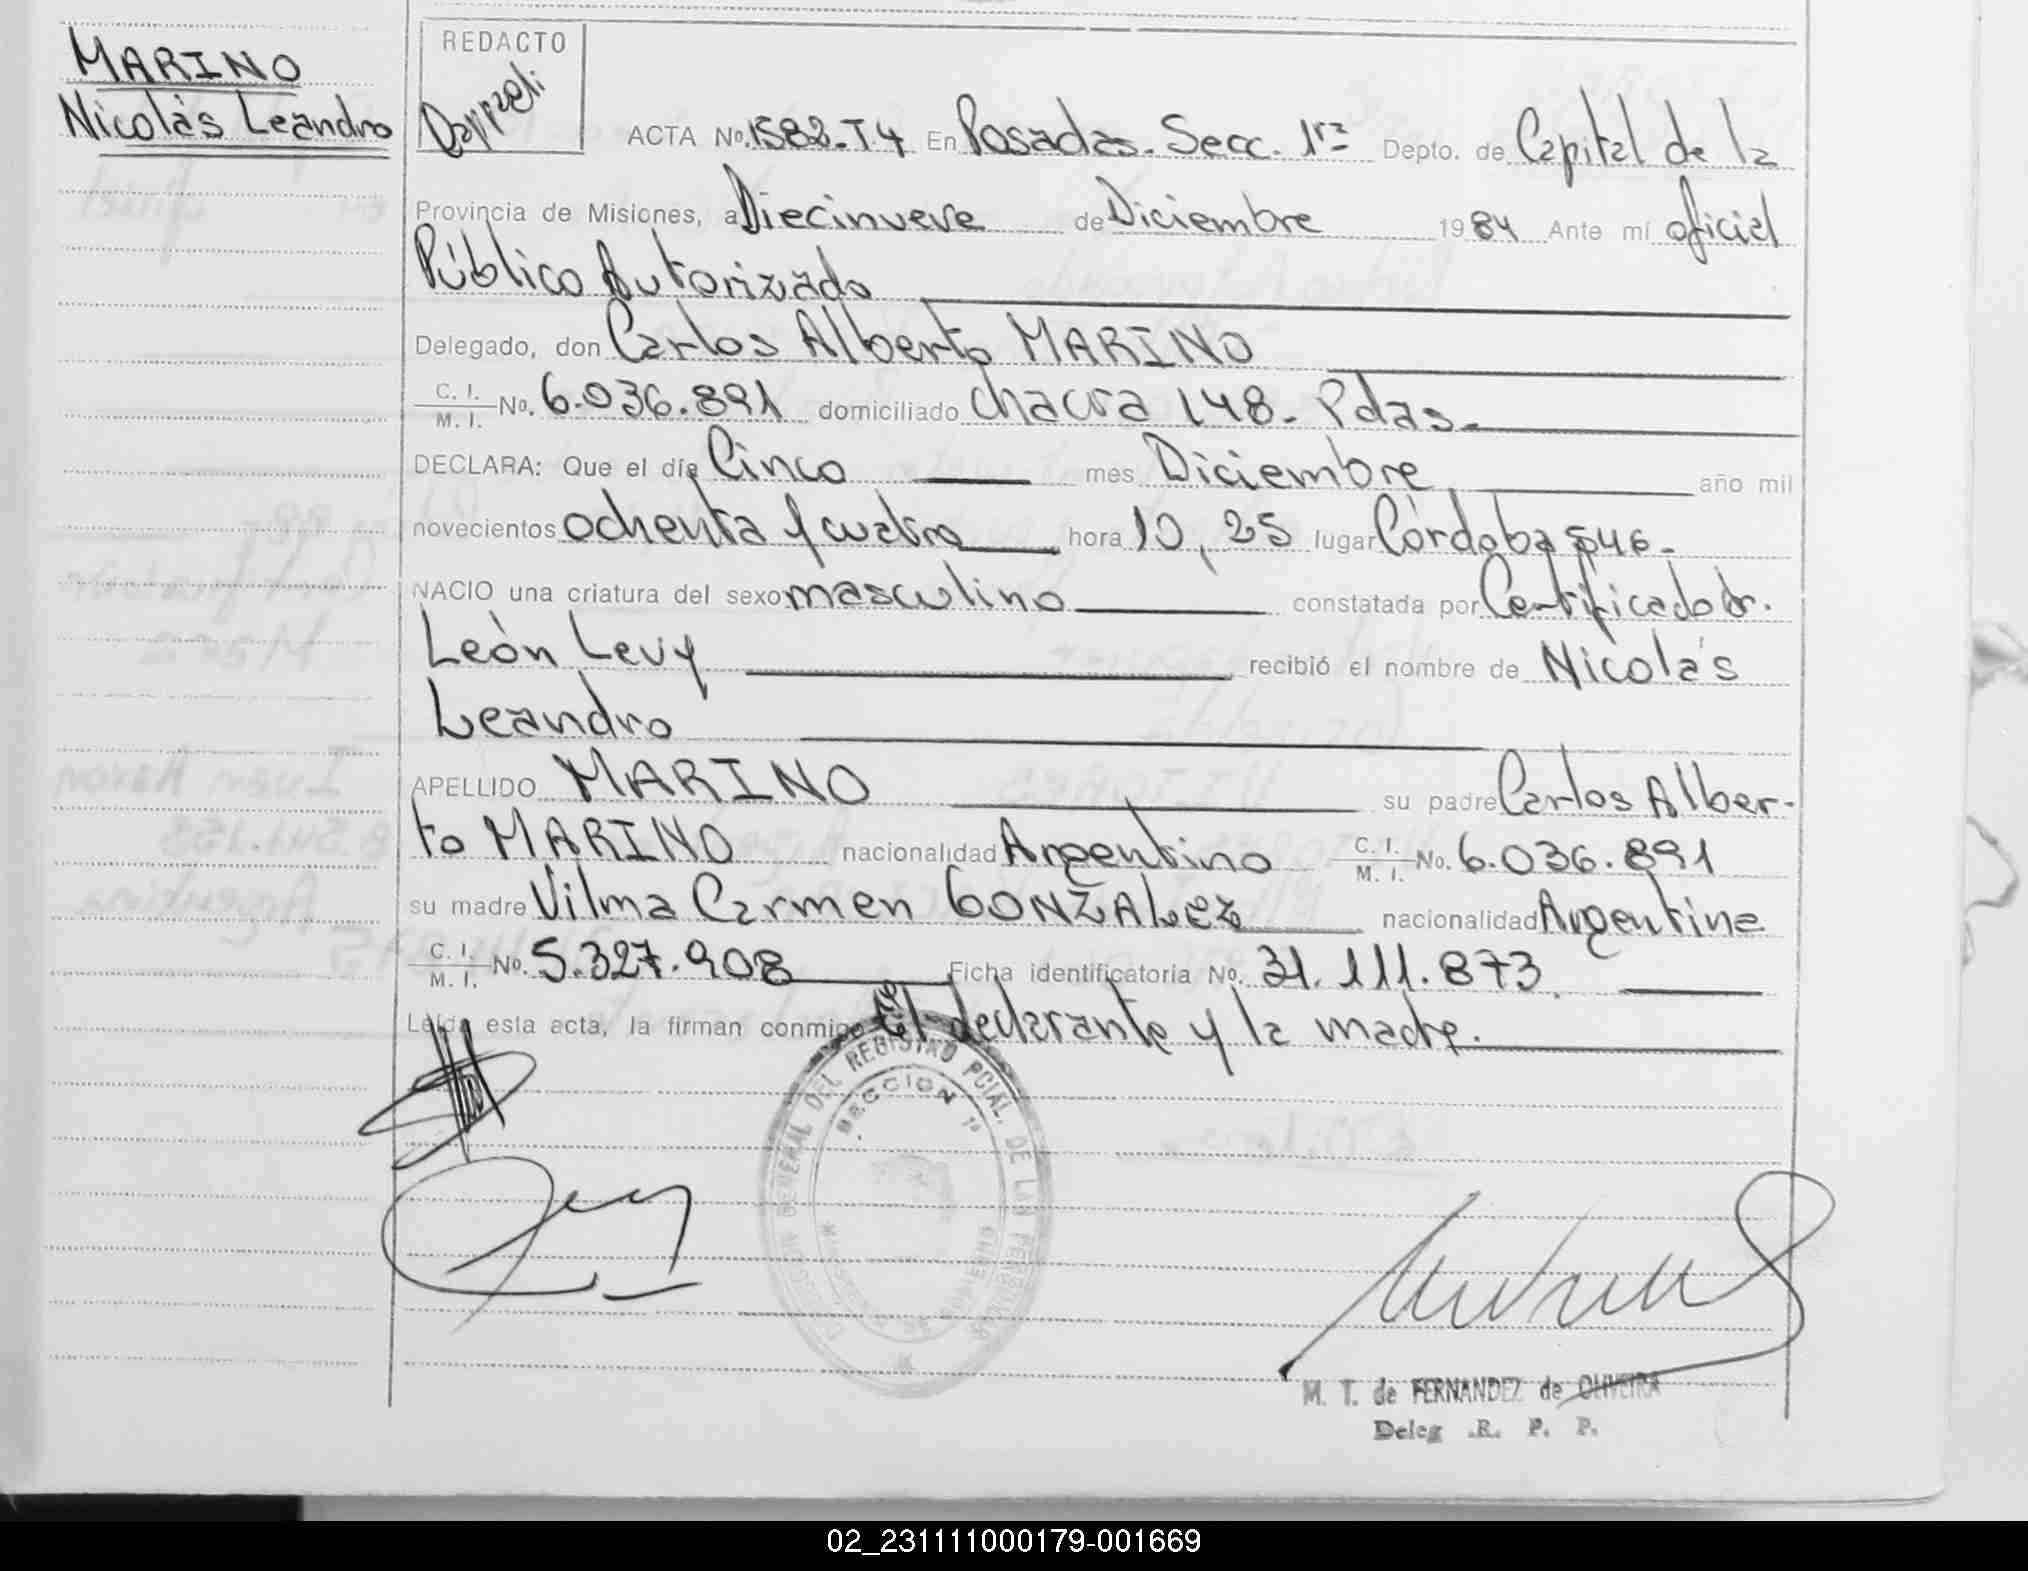 MARINO
Nicolás Leandro
REDACTO
ACTA No. 1582-T4 En Posadas. Secc. 1ra Depto. de Capital de la
Provincia de Misiones, a Diecinueve de Diciembre 1984 Ante mí oficial
Público Autorizado
Delegado, don Carlos Alberto MARINO
C. I. M. I. No. 6.036.891 domiciliado chacra 148- Pdas.
DECLARA: Que el día Cinco mes Diciembre año mil
novecientos ochenta y cuatro hora 10,25 lugar Córdoba 546-
NACIO una criatura del sexo masculino constatada por Certificado Dr.
León Levy recibió el nombre de Nicolás
Leandro
APELLIDO MARINO su padre Carlos Alber-
to MARINO nacionalidad Argentino C. I. M. I. No. 6.036.891
su madre Vilma Carmen GONZALEZ nacionalidad Argentina
C. I. M. I. No. 5.327.908 Ficha identificatoria No. 31.111.873
Leída esta acta, la firman conmigo El declarante y la madre.
GENERAL DEL REGISTRO PCIAL. DE LAS PERSONAS
SECCION 1ª
M. T. de FERNANDEZ de OLIVEIRA
Deleg .R. P. P.
02_231111000179-001669